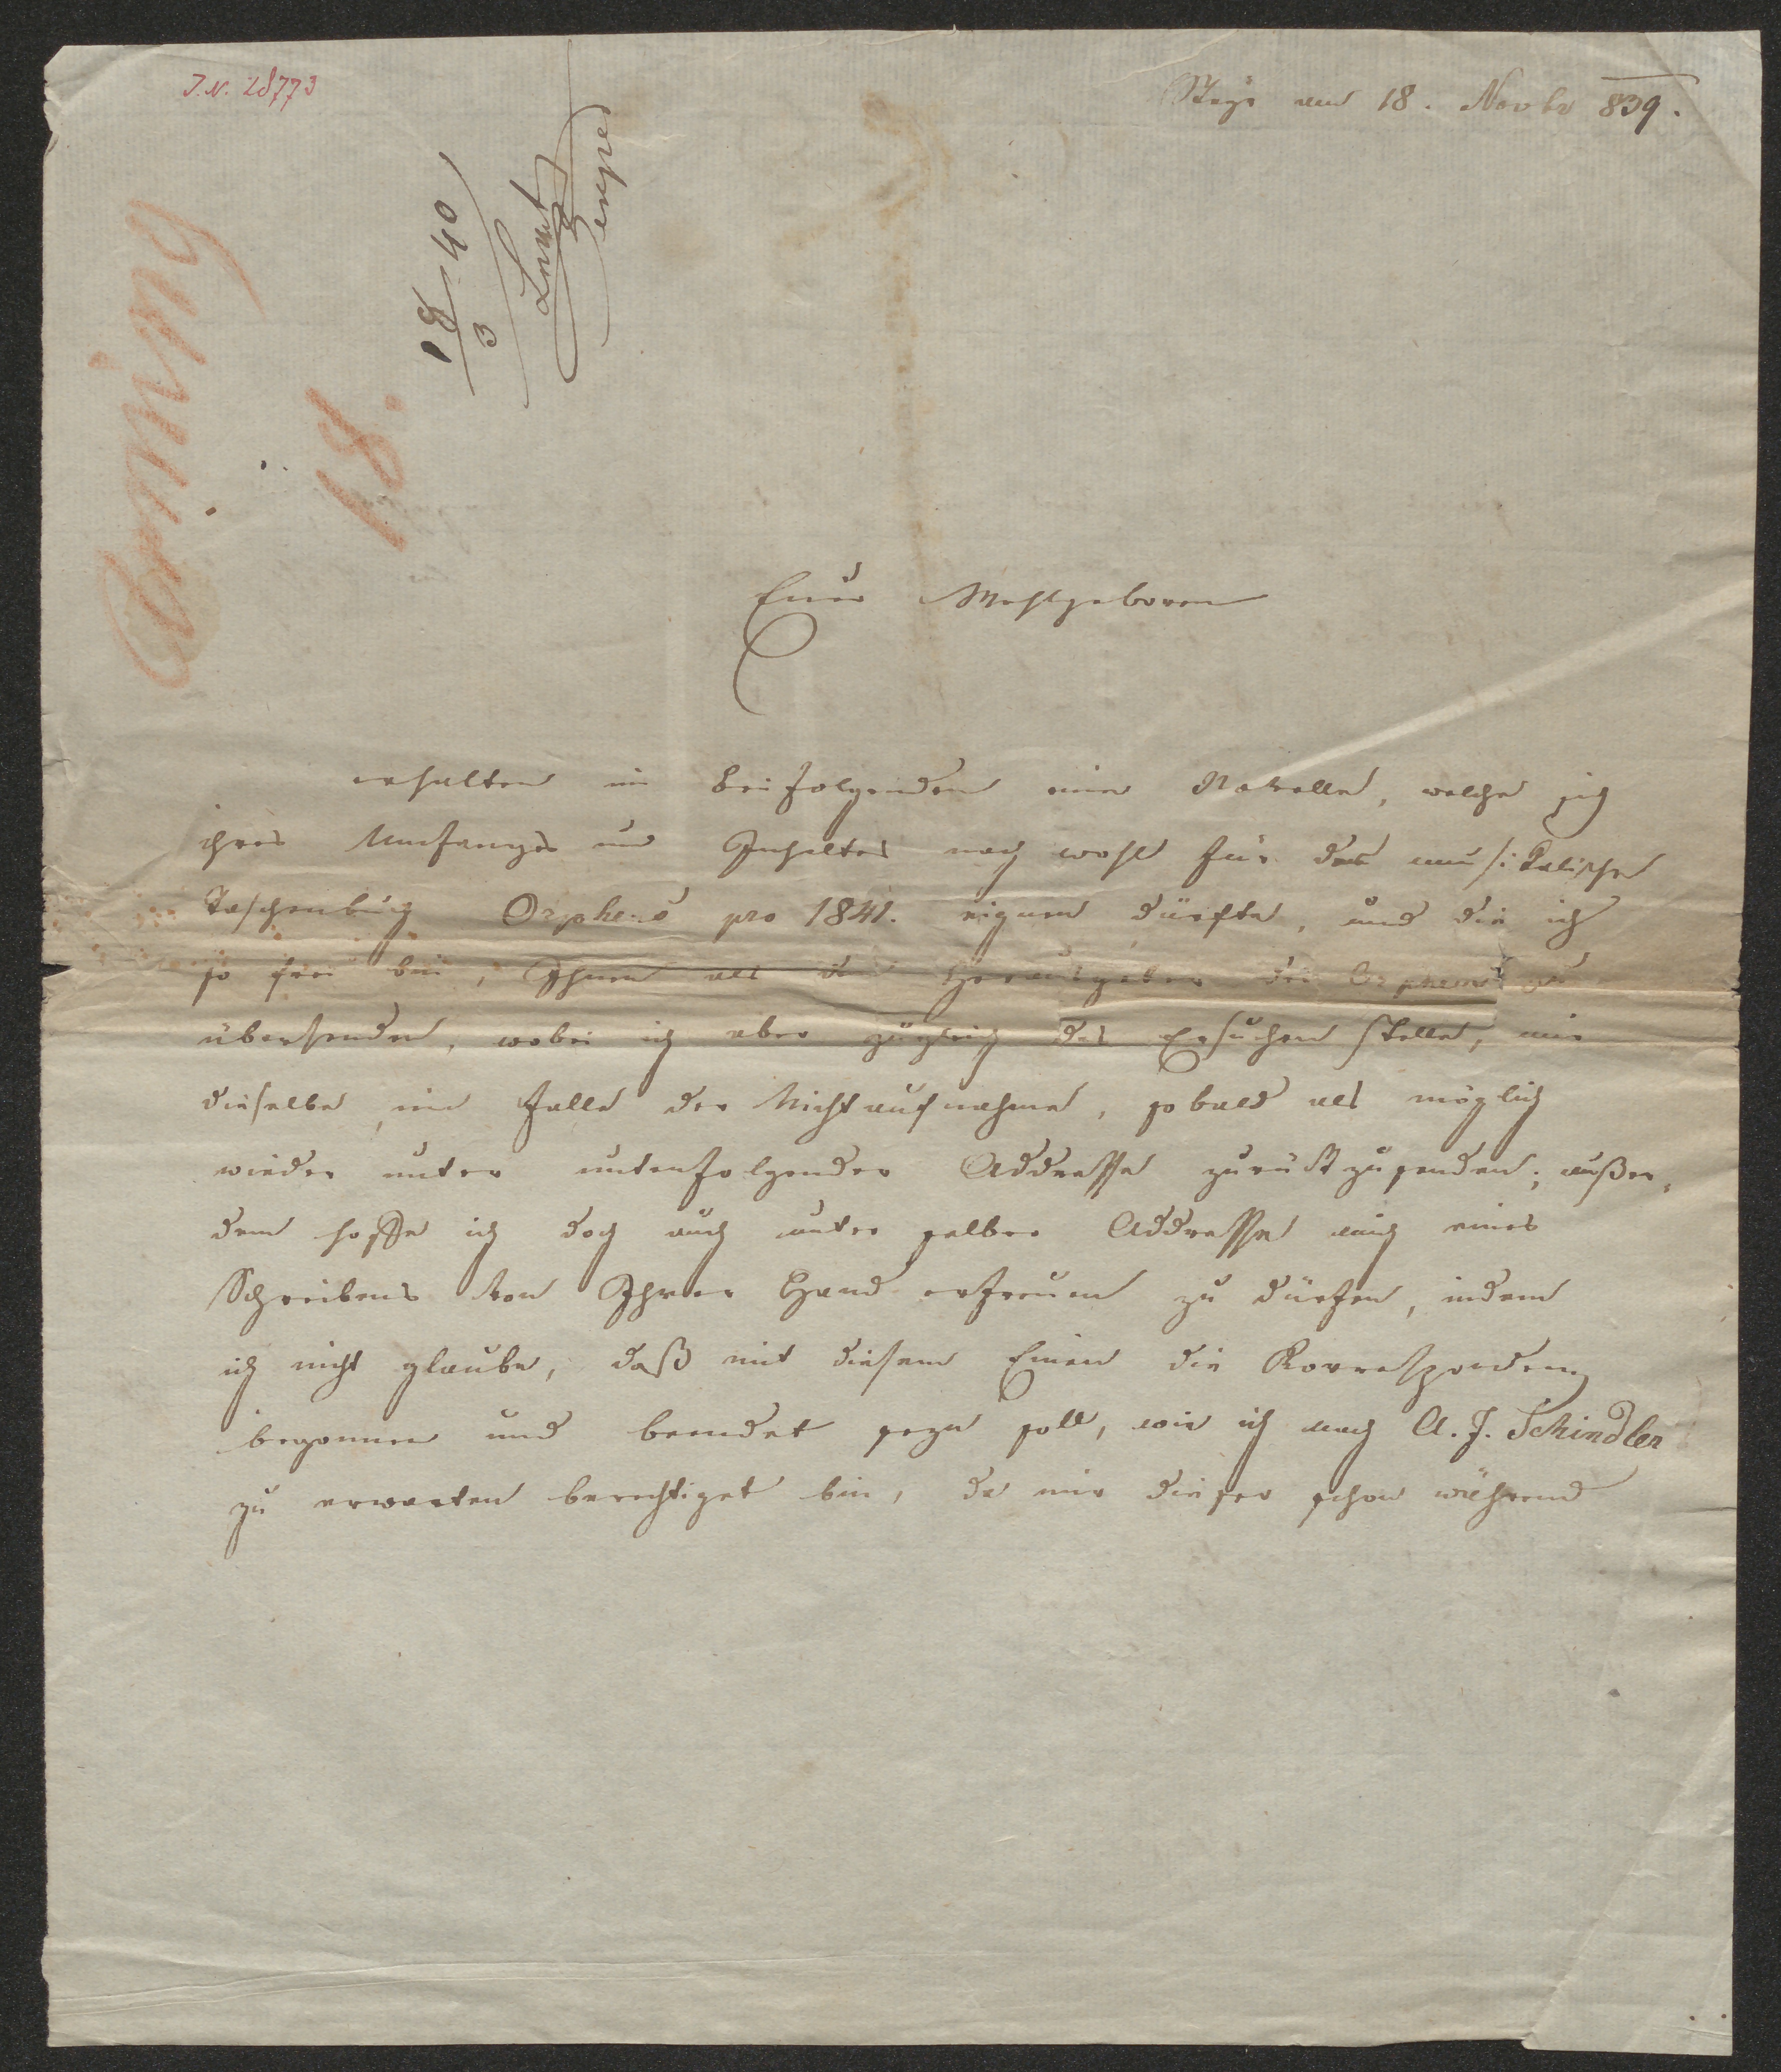 I.N. 28773
Steyr am 18. Novbr 839.
18/3 40
81
Euer Wohlgeboren
erhalten im beifolgenden eine Novelle, welche sich
ihres Umfanges und Inhaltes nach wohl für das musikalische
Taschenbuch Orpheus pro 1841. eignen dürfte, und die ich
so frei bin, Ihnen als dem Herausgeber des Orpheus zu
übersenden, wobei ich aber zugleich das Ersuchen stelle, mir
dieselbe, im Falle der Nichtaufnahme, sobald als möglich
wieder unter untenfolgender Addresse zurückzusenden; außer,
dem hoffe ich doch auch unter selber Addresse mich eines
Schreibens von Ihrer Hand erfreuen zu dürfen, indem
ich nicht glaube, daß mit diesem Einen die Korrespondenz
begonnen und beendet seyn soll, wie ich nach A. J. Schindler
zu erwarten berechtiget bin, da mir dieser schon während